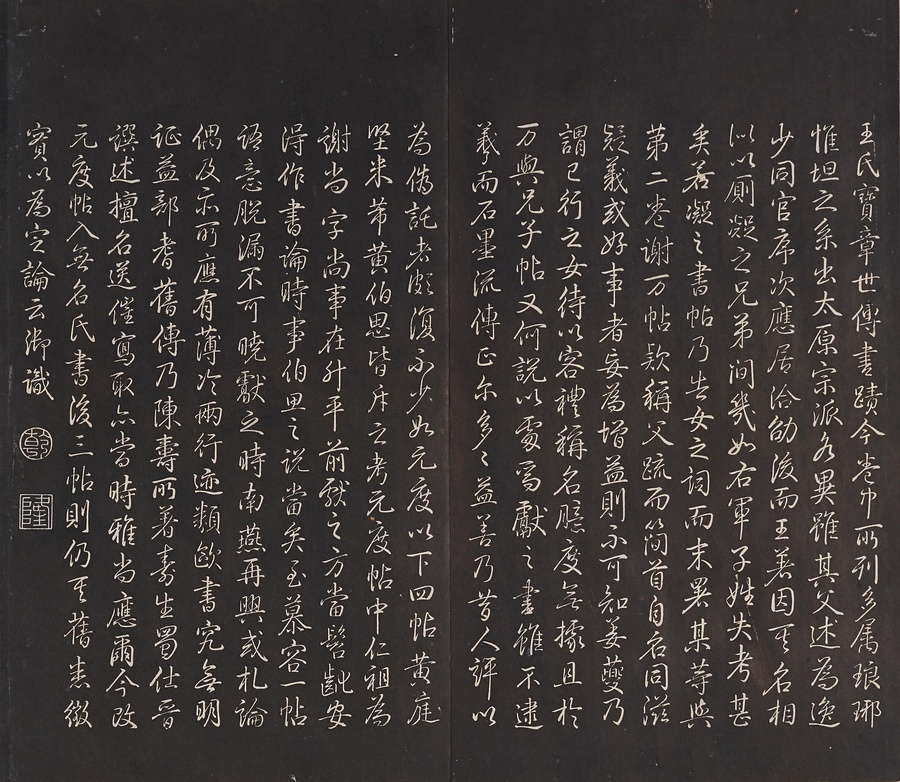 王氏寶章世傳書蹟今卷中所刊多屬琅琊
惟坦之系出太原宗派各異雖其父述為逸
少同官席次應居洽劭後而王著因其名相
似以廁凝之兄弟間幾如右軍子姓失考甚
矣若凝之書帖乃告女之詞而末署某等與
第二卷謝万帖款稱父疏而簡首自名同滋
疑義或好事者妄為增益則不可知姜夔乃
謂已行之女待以容禮稱名臆度無據且於
万與兄子帖又何說以處焉獻之書雖不逮
羲而石墨流傳正尔多多益善乃昔人評以
為偽託者頗復不少如元度以下四帖黃庭
堅米芾黃伯思皆斥之考元度帖中仁祖為
謝尚字尚事在升平前獻之方當髫齔安
得作書論時事伯思之說當矣至慕容一帖
語意脫漏不可曉獻之時南燕再興或札論
偶及示所應有薄冷兩行迹類歐書究無明
证益部耆舊傳乃陳壽所著壽生蜀仕晉
譔述擅名送催寫取亦當時雅尚應爾今改
元度帖入無名氏書後三帖則仍其舊悉徵
實以為定論云御識
乾
隆